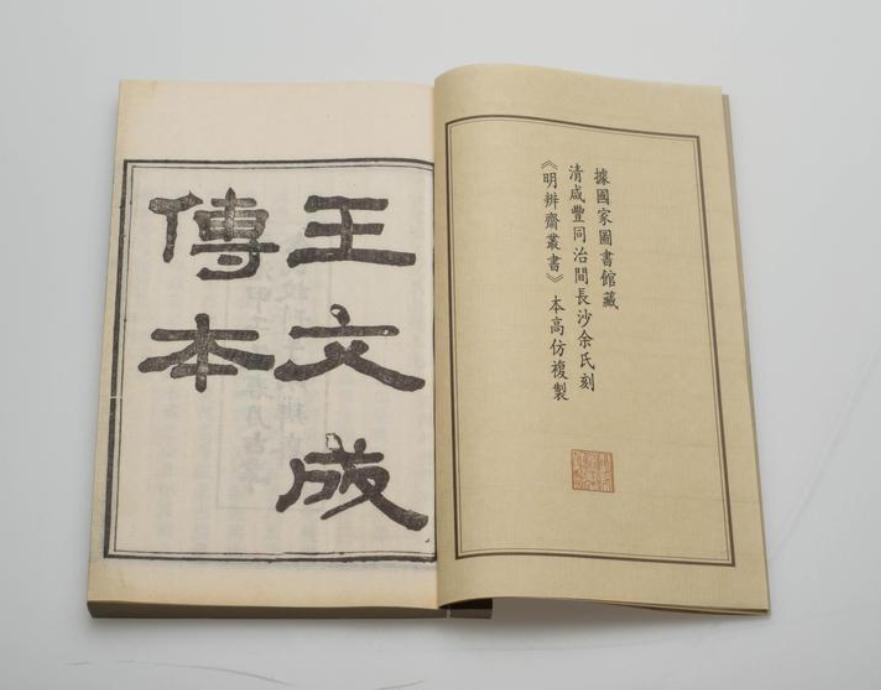 據國家圖書館藏
清咸豐同治間長沙余氏刻
《明辨齋叢書》本高仿複製
王文成
傳本